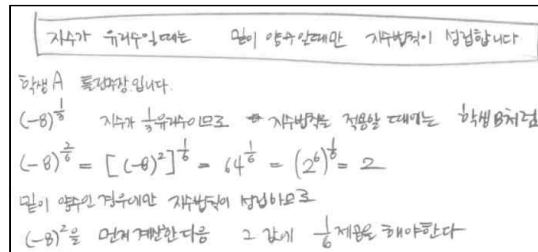 지수가 유리수일때는 밑이 양수일때만 지수법칙이 성립합니다
학생A 특정주장입니다.
(-8)^{\frac{1}{3}} 지수가 \frac{1}{3}유리수이므로 지수법칙을 적용할 때에는 학생B처럼
(-8)^{\frac{2}{6}} = [(-8)^2]^{\frac{1}{6}} = 64^{\frac{1}{6}} = (2^6)^{\frac{1}{6}} = 2
밑이 양수인 경우에만 지수법칙이 성립하므로
(-8)^2을 먼저계산한다음 그 값에 \frac{1}{6}제곱을 해야한다